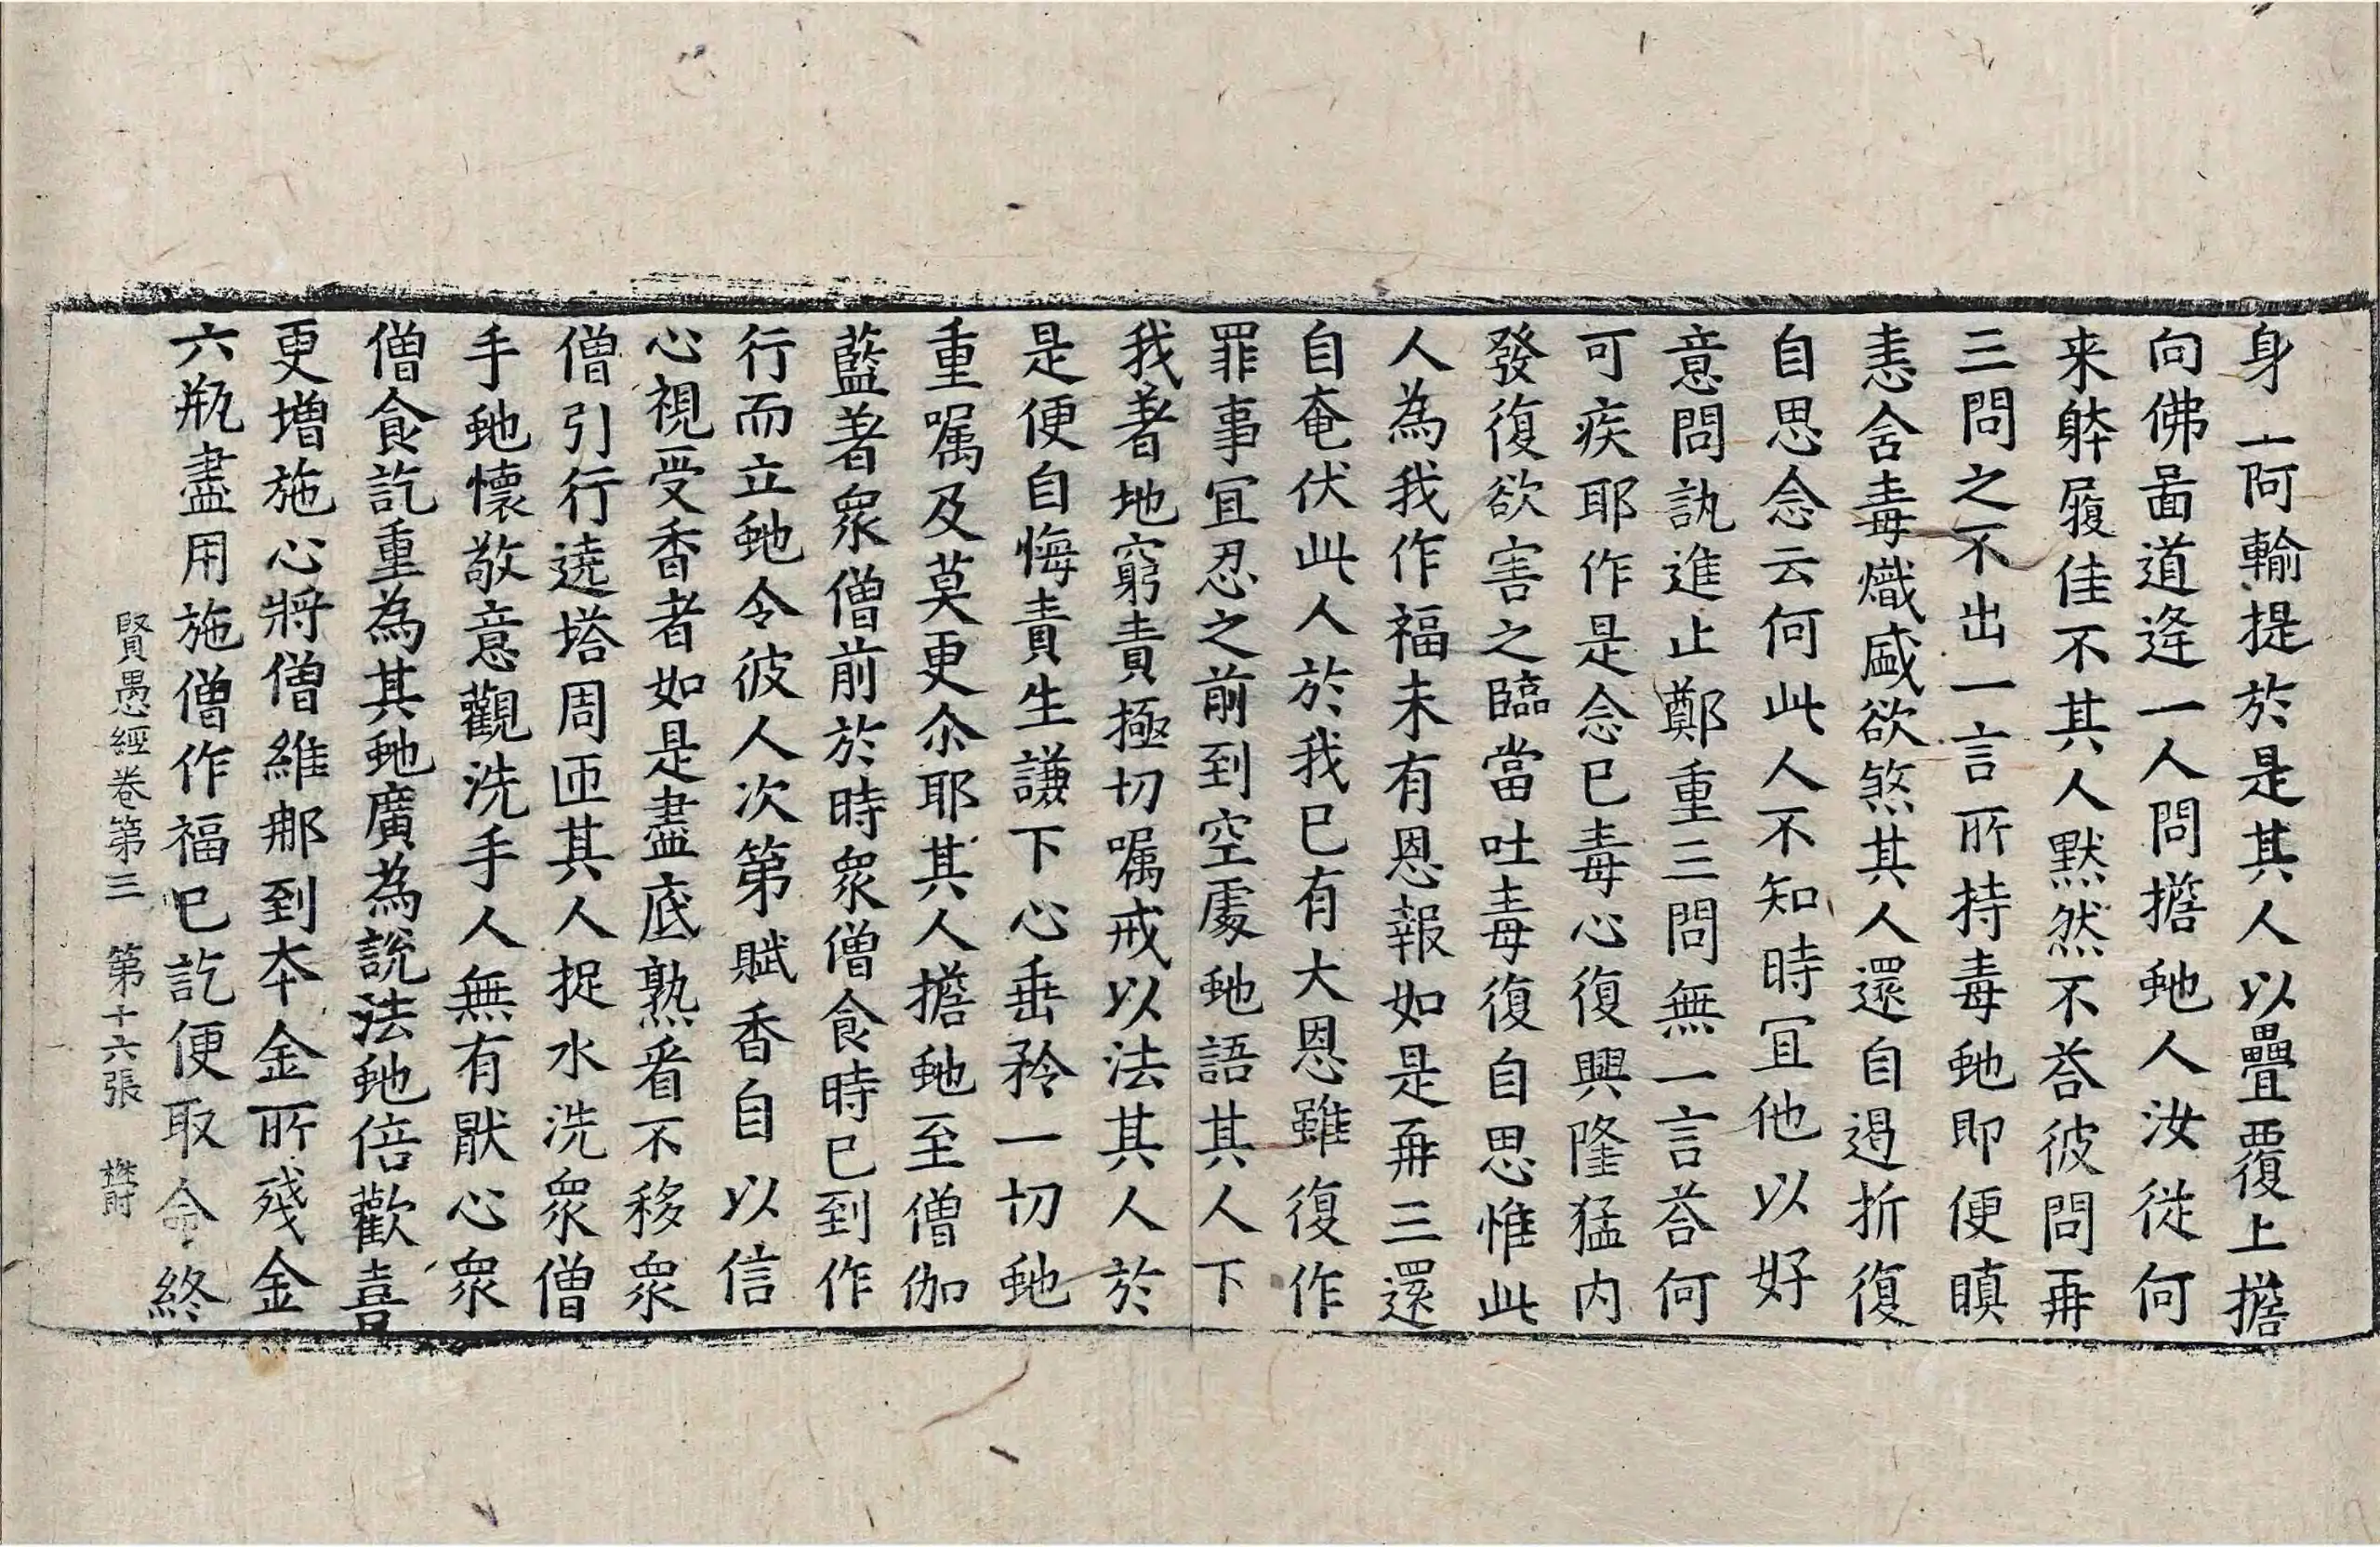 身一阿輸提於是其人以疊覆上擔
向佛啚道逢一人問擔虵人汝從何
来躰履佳不其人默然不荅彼問再
三問之不出一言所持毒虵即便瞋
恚含毒熾盛欲煞其人還自遏折復
自思念云何此人不知時冝他以好
意問訊進止鄭重三問無一言荅何
可疾耶作是念已毒心復興隆猛内
發復欲害之臨當吐毒復自思惟此
人為我作福未有恩報如是再三還
自奄伏此人於我已有大恩雖復作
罪事冝忍之前到空處虵語其人下
我著地窮責極切囑戒以法其人於
是便自悔責生謙下心垂矜一切虵
重囑及莫更尒耶其人擔虵至僧伽
藍著衆僧前於時衆僧食時已到作
行而立虵令彼人次第賦香自以信
心視受香者如是盡底熟看不移衆
僧引行遶塔周匝其人捉水洗衆僧
手虵懷敬意觀洗手人無有猒心衆
僧食訖重為其虵廣為說法虵倍歡喜
更增施心將僧維那到本金所殘金
六瓶盡用施僧作福已訖便取命終
賢愚經卷第三　第十六張